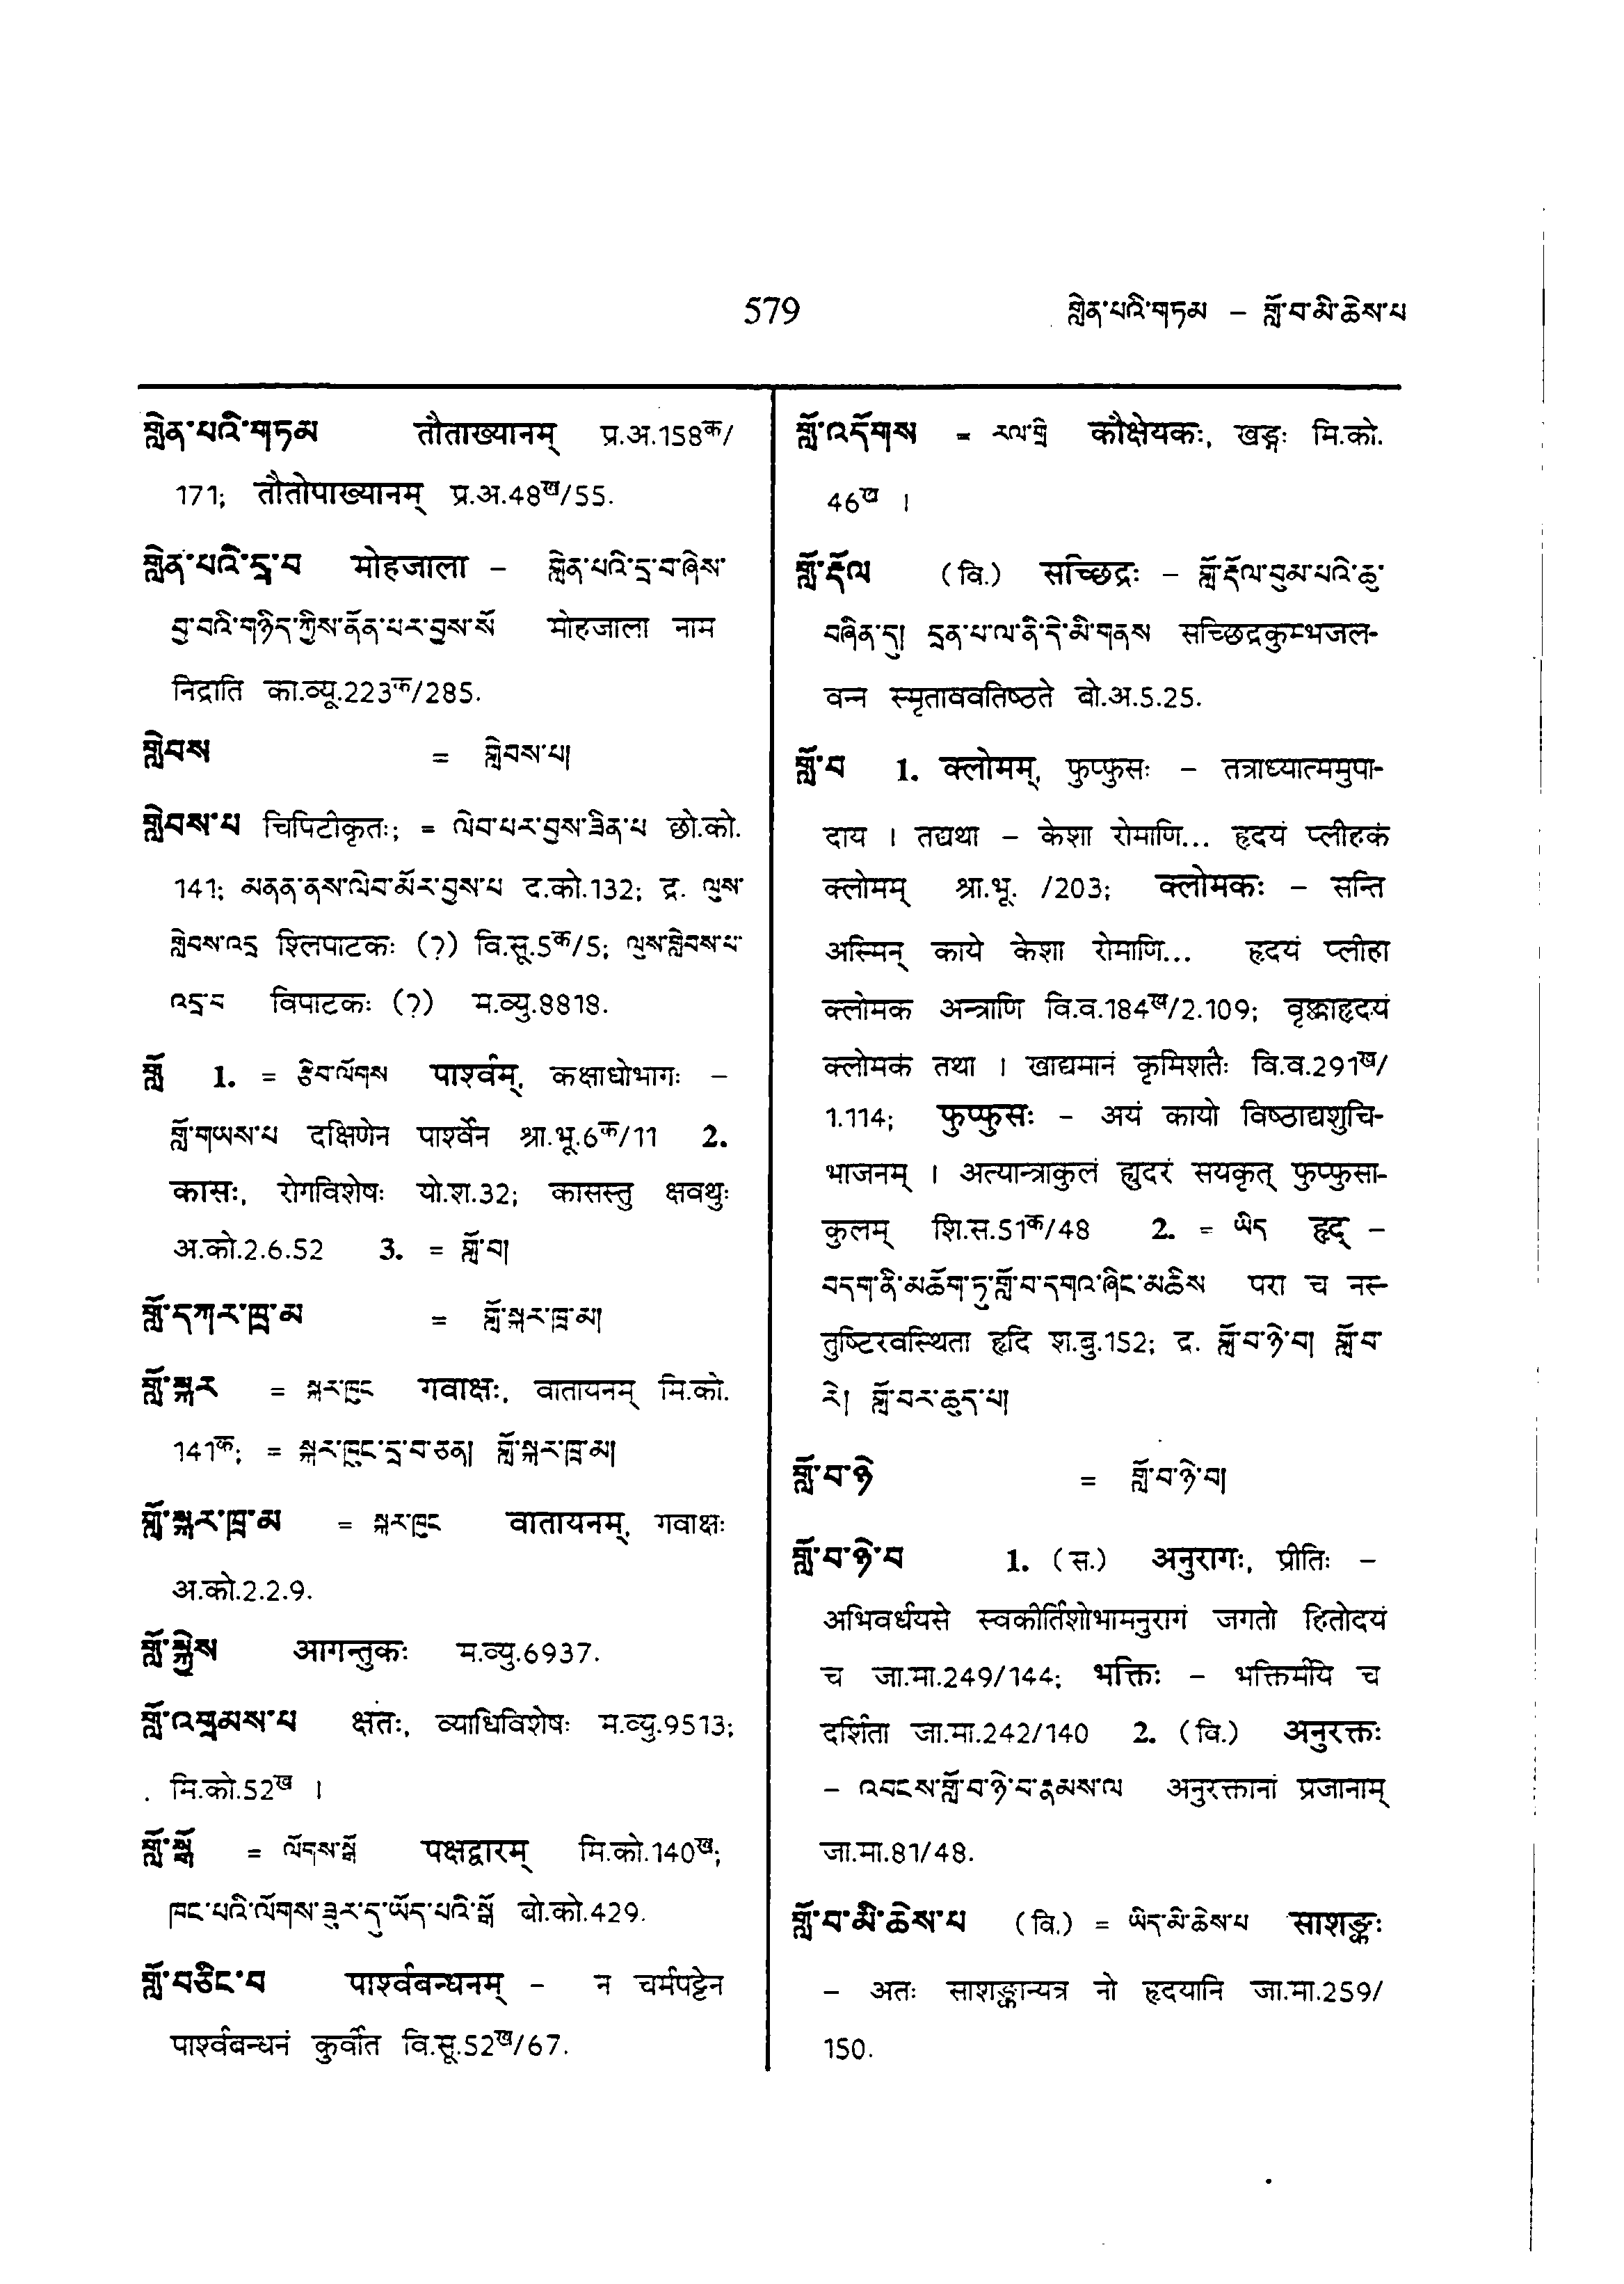 579 གླེན་པའི་གཏམ – གློ་བ་མི་ཆེས་པ
གླེན་པའི་གཏམ तौताख्यानम् प्र.अ.158क/
171; तौतोपाख्यानम् प्र.अ.48ख/55.
གླེན་པའི་དྲ་བ मोहजाला – གླེན་པའི་དྲ་བ་ཞེས་
བྱ་བའི་གཉིད་ཀྱིས་ནོན་པར་བྱས་སོ मोहजाला नाम
निद्राति का.व्यू.223क/285.
གླེབས = གླེབས་པ།
གླེབས་པ चिपिटीकृतः; = ལེབ་པར་བྱས་ཟིན་པ छो.को.
141; མནན་ནས་ལེབ་མོར་བྱས་པ द.को.132; द्र. ལུས་
གླེབས་འདྲ श्लिपाटकः (?) वि.सू.5क/5; ལུས་གླེབས་པ་
འདྲ་བ विपाटकः (?) म.व्यु.8818.
གློ 1. = རྩིབ་ལོགས पार्श्वम्, कक्षाधोभागः –
གློ་གཡས་པ दक्षिणेन पार्श्वेन श्रा.भू.6क/11 2.
कासः, रोगविशेषः यो.श.32; कासस्तु क्षवथुः
अ.को.2.6.52 3. = གློ་བ།
གློ་དཀར་ཁྲ་མ = གློ་སྐར་ཁྲ་མ།
གློ་སྐར = སྐར་ཁུང गवाक्षः, वातायनम् मि.को.
141क; = སྐར་ཁུང་དྲ་བ་ཅན། གློ་སྐར་ཁྲ་མ།
གློ་སྐར་ཁྲ་མ = སྐར་ཁུང वातायनम्, गवाक्षः
अ.को.2.2.9.
གློ་སྐྱེས आगन्तुकः म.व्यु.6937.
གློ་འགྲམས་པ क्षतः, व्याधिविशेषः म.व्यु.9513;
मि.को.52ख ।
གློ་སྒོ = ལོགས་སྒོ पक्षद्वारम् मि.को.140ख;
ཁང་པའི་ལོགས་ཟུར་དུ་ཡོད་པའི་སྒོ बो.को.429.
གློ་བཅིང་བ पार्श्वबन्धनम् – न चर्मपट्टेन
पार्श्वबन्धनं कुर्वीत वि.सू.52ख/67.
གློ་འདོགས = རལ་གྲི कौक्षेयकः, खड्गः मि.को.
46ख ।
གློ་རྡོལ (वि.) सच्छिद्रः – གློ་རྡོལ་བུམ་པའི་ཆུ་
བཞིན་དུ། དྲན་པ་ལ་ནི་དེ་མི་གནས सच्छिद्रकुम्भजल-
वन्न स्मृताववतिष्ठते बो.अ.5.25.
གློ་བ 1. क्लोमम्, फुप्फुसः – तत्राध्यात्ममुपा-
दाय । तद्यथा – केशा रोमाणि... हृदयं प्लीहकं
क्लोमम् श्रा.भू. /203; क्लोमकः – सन्ति
अस्मिन् काये केशा रोमाणि... हृदयं प्लीहा
क्लोमक अन्त्राणि वि.व.184ख/2.109; वृक्काहृदयं
क्लोमकं तथा । खाद्यमानं कृमिशतैः वि.व.291ख/
1.114; फुप्फुसः – अयं कायो विष्ठाद्यशुचि-
भाजनम् । अत्यान्त्राकुलं ह्युदरं सयकृत् फुप्फुसा-
कुलम् शि.स.51क/48 2. = ཡིད हृद् –
བདག་ནི་མཆོག་ཏུ་གློ་བ་དགའ་ཞིང་མཆིས परा च नस्-
तुष्टिरवस्थिता हृदि श.बु.152; द्र. གློ་བ་ཉེ་བ། གློ་བ་
རེ། གློ་བར་ཆུད་པ།
གློ་བ་ཉེ = གློ་བ་ཉེ་བ།
གློ་བ་ཉེ་བ 1. (स.) अनुरागः, प्रीतिः –
अभिवर्धयसे स्वकीर्तिशोभामनुरागं जगतो हितोदयं
च जा.मा.249/144; भक्तिः – भक्तिर्मयि च
दर्शिता जा.मा.242/140 2. (वि.) अनुरक्तः
– འབངས་གློ་བ་ཉེ་བ་རྣམས་ལ अनुरक्तानां प्रजानाम्
जा.मा.81/48.
གློ་བ་མི་ཆེས་པ (वि.) = ཡིད་མི་ཆེས་པ साशङ्कः
– अतः साशङ्कान्यत्र नो हृदयानि जा.मा.259/
150.